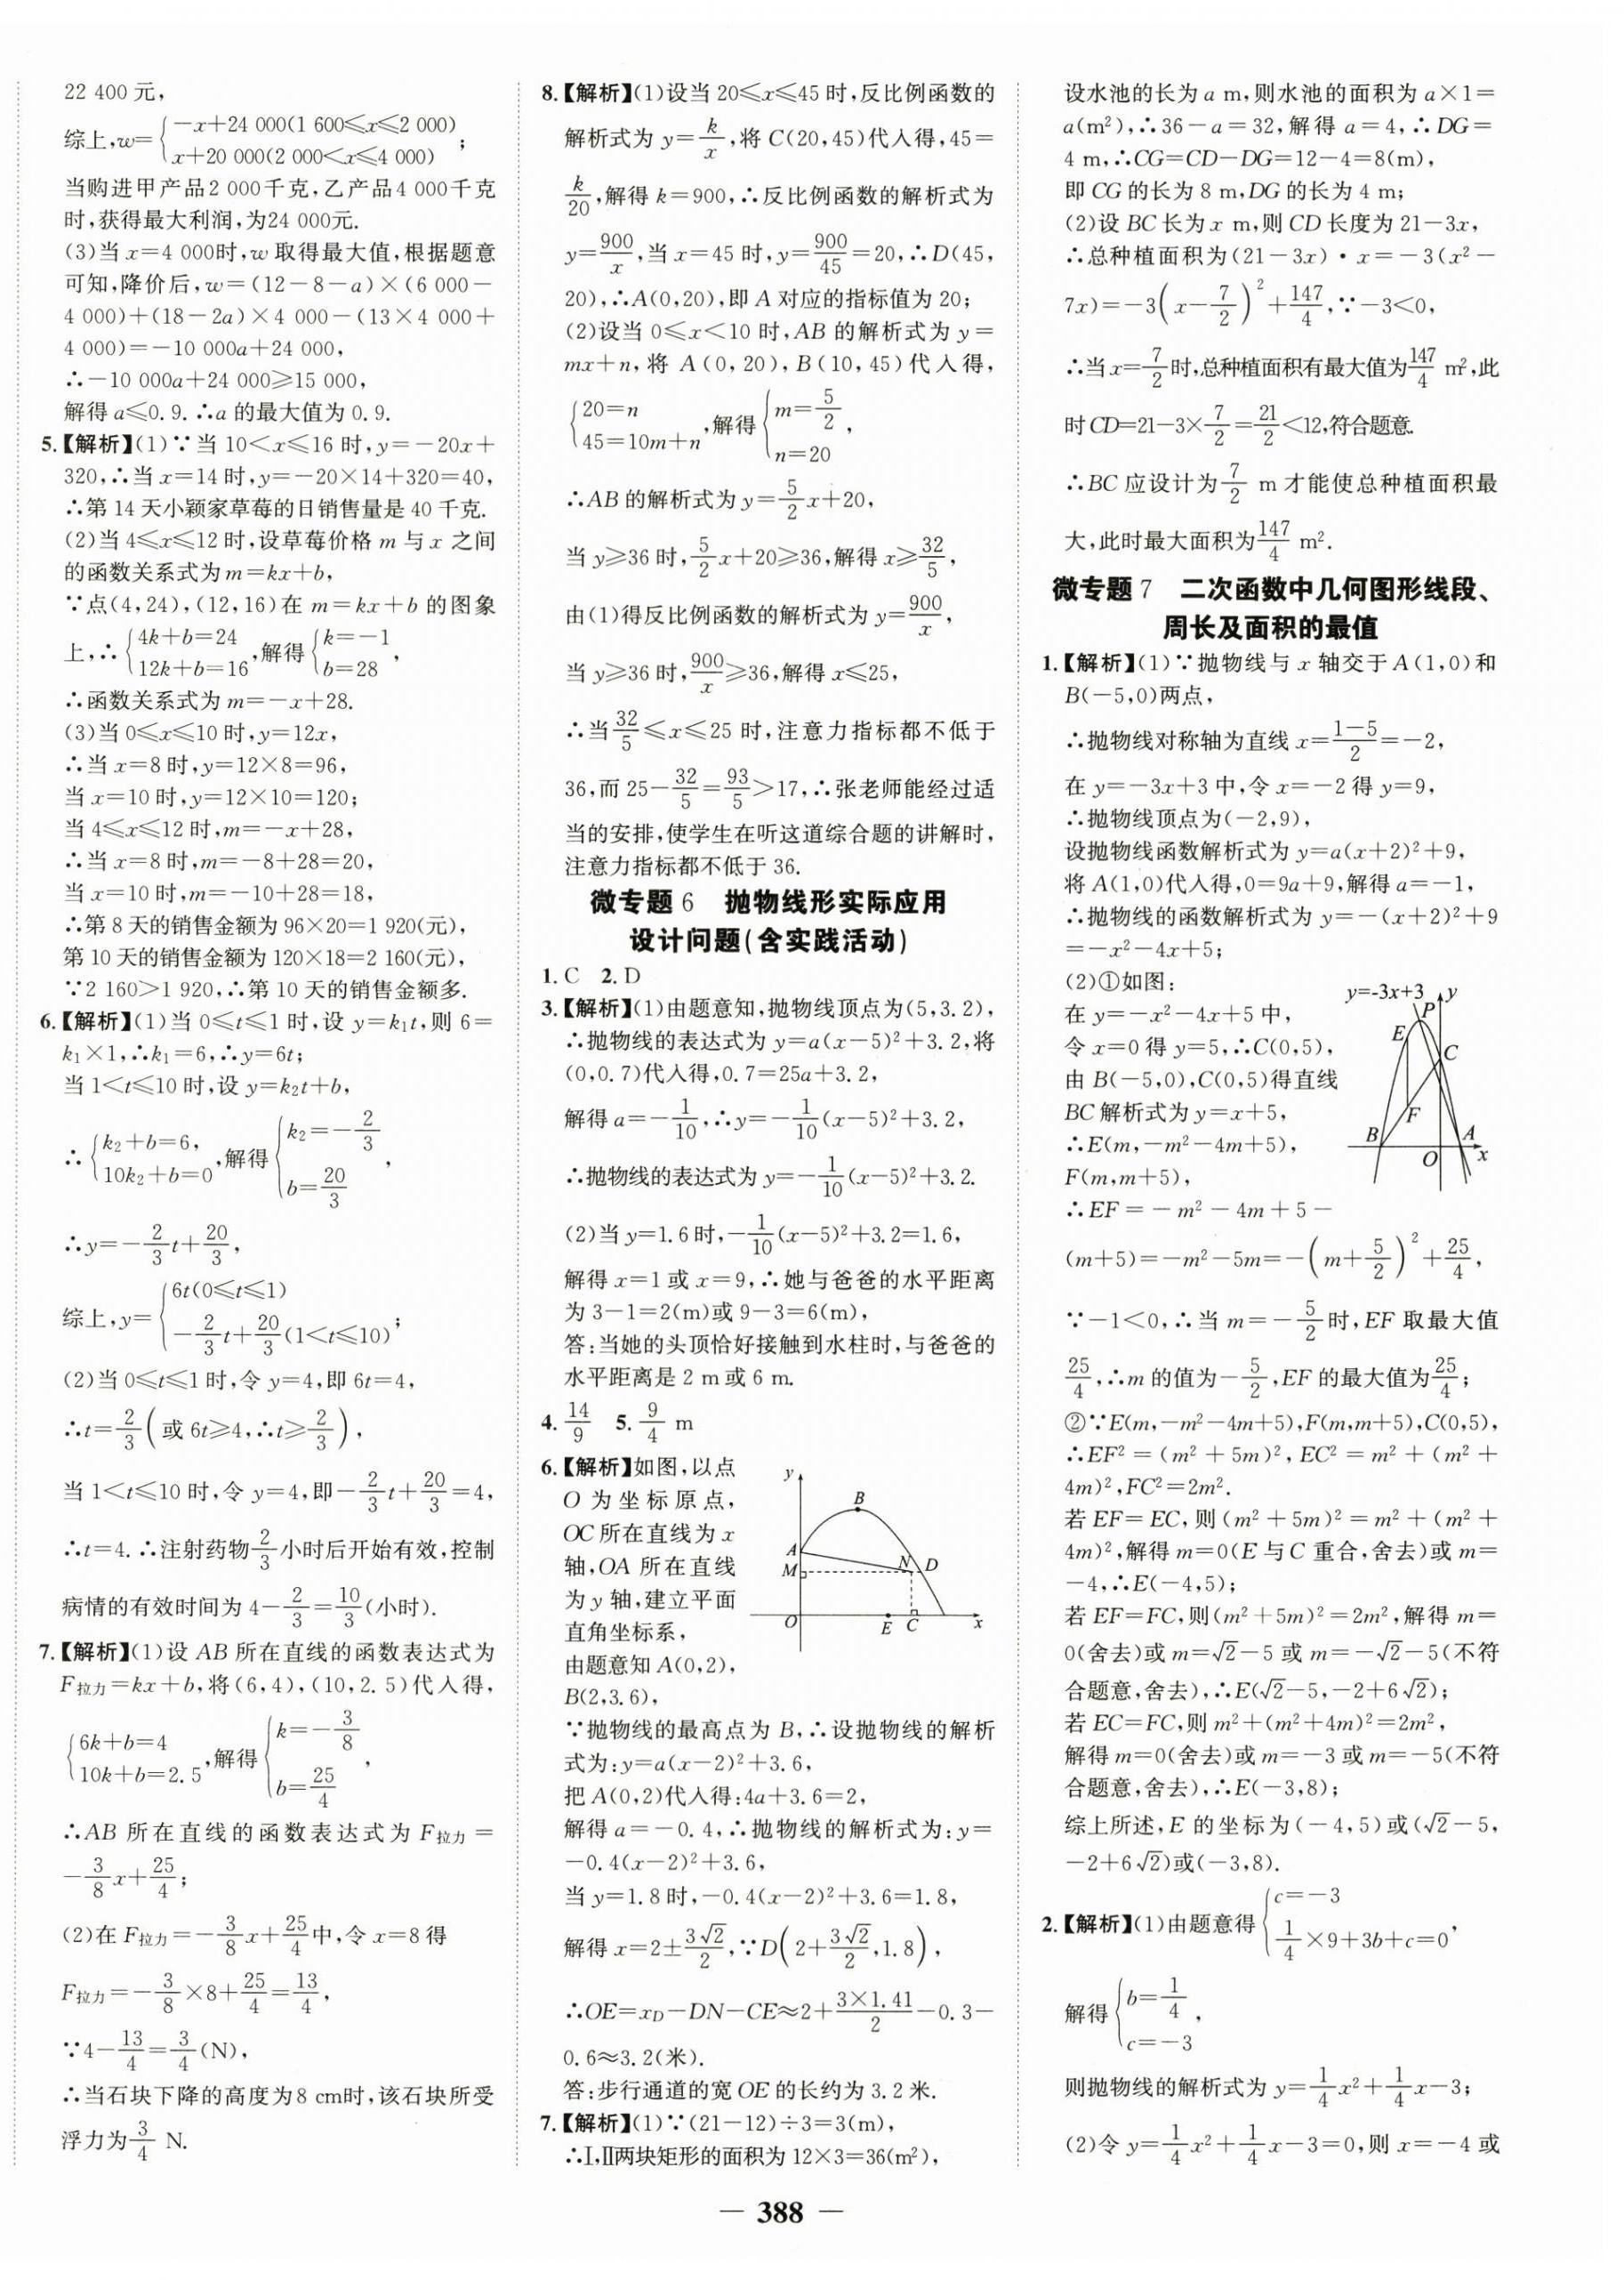 22 400 元,
综上,w={−x+24 000(1 600⩽x⩽2 000)
x+20 000(2 000<x⩽4 000) ;
当购进甲产品2 000千克,乙产品4 000千克
时,获得最大利润,为24 000元.
(3)当 x=4 000时,w 取得最大值,根据题意
可知,降价后,w=(12−8−a)×(6 000−
4 000)+(18−2a)×4 000−(13×4 000+
4 000)=−10 000a+24 000,
∴−10 000a+24 000⩾15 000,
解得 a⩽0.9.∴a 的最大值为 0.9.
5.【解析】(1)∵当 10<x⩽16 时,y=−20x+
320,∴当 x=14 时,y=−20×14+320=40,
∴第 14 天小颖家草莓的日销售量是 40 千克.
(2)当 4⩽x⩽12 时,设草莓价格 m 与 x 之间
的函数关系式为 m=kx+b,
∵点(4,24),(12,16)在 m=kx+b 的图象
上,∴{4k+b=24
12k+b=16,解得{k=−1
b=28,
∴函数关系式为 m=−x+28.
(3)当 0⩽x⩽10 时,y=12x,
∴当 x=8 时,y=12×8=96,
当 x=10 时,y=12×10=120;
当 4⩽x⩽12 时,m=−x+28,
∴当 x=8 时,m=−8+28=20,
当 x=10 时,m=−10+28=18,
∴第 8 天的销售金额为 96×20=1 920(元),
第 10 天的销售金额为 120×18=2 160(元),
∵2 160>1 920,∴第 10 天的销售金额多.
6.【解析】(1)当 0⩽t⩽1 时,设 y=k₁t,则 6=
k₁×1,∴k₁=6,∴y=6t;
当 1<t⩽10 时,设 y=k₂t+b,
∴{k₂+b=6,
10k₂+b=0,解得{k₂=−2/3
b=20/3,
∴y=−2/3t+20/3,
综上,y={6t(0⩽t⩽1)
−2/3t+20/3(1<t⩽10);
(2)当 0⩽t⩽1 时,令 y=4,即 6t=4,
∴t=2/3(或 6t⩾4,∴t⩾2/3),
当 1<t⩽10 时,令 y=4,即−2/3t+20/3=4,
∴t=4.∴注射药物2/3小时后开始有效,控制
病情的有效时间为 4−2/3=10/3(小时).
7.【解析】(1)设 AB 所在直线的函数表达式为
F拉力=kx+b,将(6,4),(10,2.5)代入得,
{6k+b=4
10k+b=2.5,解得{k=−3/8
b=25/4,
∴AB 所在直线的函数表达式为 F拉力=
−3/8x+25/4;
(2)在 F拉力=−3/8x+25/4中,令 x=8 得
F拉力=−3/8×8+25/4=13/4,
∵4−13/4=3/4(N),
∴当石块下降的高度为8 cm时,该石块所受
浮力为3/4 N.
8.【解析】(1)设当 20⩽x⩽45 时,反比例函数的
解析式为 y=k/x,将 C(20,45)代入得,45=
k/20,解得 k=900,∴反比例函数的解析式为
y=900/x,当 x=45 时,y=900/45=20,∴D(45,
20),∴A(0,20),即 A 对应的指标值为 20;
(2)设当 0⩽x<10 时,AB 的解析式为 y=
mx+n,将 A(0,20),B(10,45)代入得,
{20=n
45=10m+n,解得{m=5/2
n=20,
∴AB 的解析式为 y=5/2x+20,
当 y⩾36 时,5/2x+20⩾36,解得 x⩾32/5,
由(1)得反比例函数的解析式为 y=900/x,
当 y⩾36 时,900/x⩾36,解得 x⩽25,
∴当32/5⩽x⩽25 时,注意力指标都不低于
36,而 25−32/5=93/5>17,∴张老师能经过适
当的安排,使学生在听这道综合题的讲解时,
注意力指标都不低于 36.
微专题 6 抛物线形实际应用
设计问题(含实践活动)
1.C 2.D
3.【解析】(1)由题意知,抛物线顶点为(5,3.2),
∴抛物线的表达式为 y=a(x−5)²+3.2,将
(0,0.7)代入得,0.7=25a+3.2,
解得 a=−1/10,∴y=−1/10(x−5)²+3.2,
∴抛物线的表达式为 y=−1/10(x−5)²+3.2.
(2)当 y=1.6时,−1/10(x−5)²+3.2=1.6,
解得 x=1 或 x=9,∴她与爸爸的水平距离
为 3−1=2(m)或 9−3=6(m),
答:当她的头顶恰好接触到水柱时,与爸爸的
水平距离是 2 m 或 6 m.
4. 14/9 5. 9/4 m
6.【解析】如图,以点
O 为坐标原点,
OC 所在直线为 x
轴,OA 所在直线
为 y 轴,建立平面
直角坐标系,
由题意知 A(0,2),
B(2,3.6),
y
B
A
N D
M
O E C x
∵抛物线的最高点为 B,∴设抛物线的解析
式为:y=a(x−2)²+3.6,
把 A(0,2)代入得:4a+3.6=2,
解得 a=−0.4,∴抛物线的解析式为:y=
−0.4(x−2)²+3.6,
当 y=1.8 时,−0.4(x−2)²+3.6=1.8,
解得 x=2±3√2/2,∵D(2+3√2/2,1.8),
∴OE=x_D−DN−CE≈2+3×1.41/2−0.3−
0.6≈3.2(米).
答:步行通道的宽 OE 的长约为 3.2 米.
7.【解析】(1)∵(21−12)÷3=3(m),
∴Ⅰ,Ⅱ两块矩形的面积为 12×3=36(m²),
设水池的长为 a m,则水池的面积为 a×1=
a(m²),∴36−a=32,解得 a=4,∴DG=
4 m,∴CG=CD−DG=12−4=8(m),
即 CG 的长为 8 m,DG 的长为 4 m;
(2)设 BC 长为 x m,则 CD 长度为 21−3x,
∴总种植面积为(21−3x)·x=−3(x²−
7x)=−3(x−7/2)²+147/4,∵−3<0,
∴当 x=7/2时,总种植面积有最大值为147/4 m²,此
时 CD=21−3×7/2=21/2<12,符合题意.
∴BC 应设计为7/2 m 才能使总种植面积最
大,此时最大面积为147/4 m².
微专题 7 二次函数中几何图形线段、
周长及面积的最值
1.【解析】(1)∵抛物线与 x 轴交于 A(1,0)和
B(−5,0)两点,
∴抛物线对称轴为直线 x=1−5/2=−2,
在 y=−3x+3 中,令 x=−2 得 y=9,
∴抛物线顶点为(−2,9),
设抛物线函数解析式为 y=a(x+2)²+9,
将 A(1,0)代入得,0=9a+9,解得 a=−1,
∴抛物线的函数解析式为 y=−(x+2)²+9
=−x²−4x+5;
(2)①如图:
在 y=−x²−4x+5 中,
令 x=0 得 y=5,∴C(0,5),
由 B(−5,0),C(0,5)得直线
BC 解析式为 y=x+5,
∴E(m,−m²−4m+5),
F(m,m+5),
y=-3x+3 y
P
E
C
F
B A
O x
∴EF=−m²−4m+5−
(m+5)=−m²−5m=−(m+5/2)²+25/4,
∵−1<0,∴当 m=−5/2时,EF 取最大值
25/4,∴m 的值为−5/2,EF 的最大值为25/4;
②∵E(m,−m²−4m+5),F(m,m+5),C(0,5),
∴EF²=(m²+5m)²,EC²=m²+(m²+
4m)²,FC²=2m².
若 EF=EC,则(m²+5m)²=m²+(m²+
4m)²,解得 m=0(E 与 C 重合,舍去)或 m=
−4,∴E(−4,5);
若 EF=FC,则(m²+5m)²=2m²,解得 m=
0(舍去)或 m=√2−5 或 m=−√2−5(不符
合题意,舍去),∴E(√2−5,−2+6√2);
若 EC=FC,则 m²+(m²+4m)²=2m²,
解得 m=0(舍去)或 m=−3 或 m=−5(不符
合题意,舍去),∴E(−3,8);
综上所述,E 的坐标为(−4,5)或(√2−5,
−2+6√2)或(−3,8).
2.【解析】(1)由题意得{c=−3
1/4×9+3b+c=0,
解得{b=1/4
c=−3,
则抛物线的解析式为 y=1/4x²+1/4x−3;
(2)令 y=1/4x²+1/4x−3=0,则 x=−4 或
— 388 —